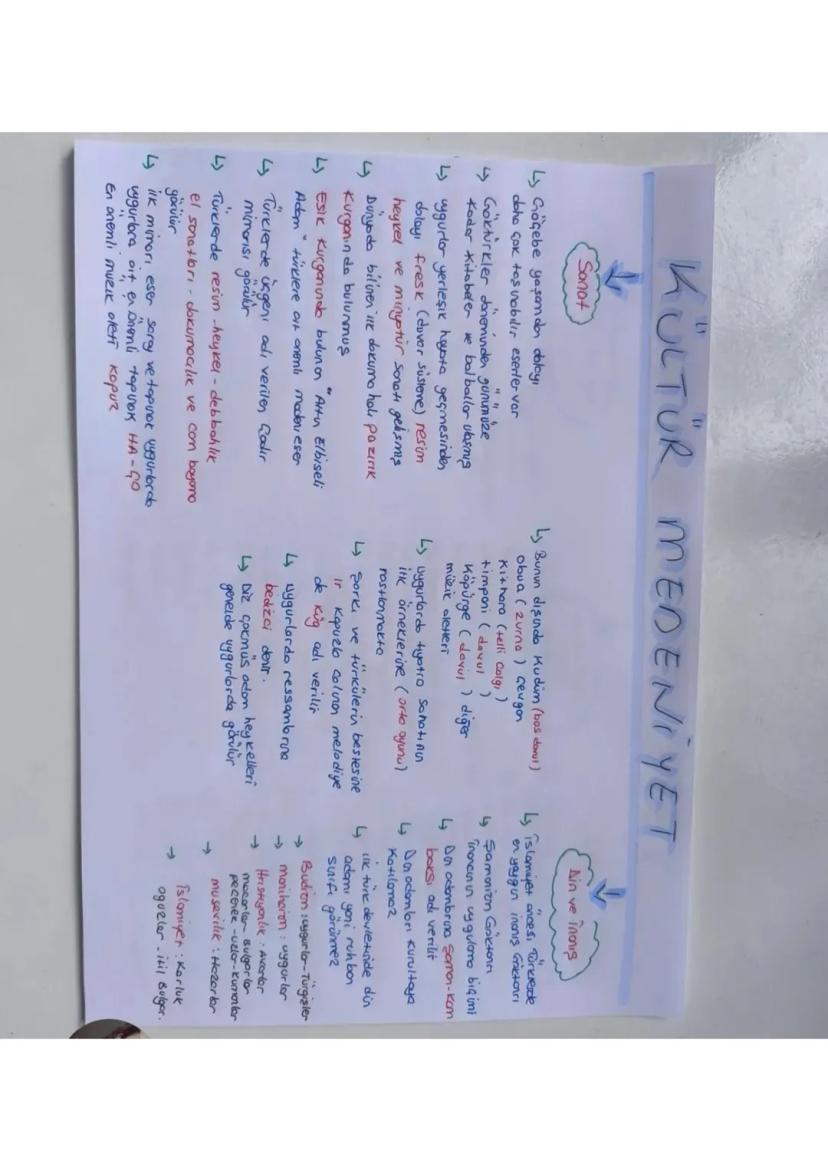 KÜLTÜR MEDENİYET
Sanat
↳ Göçebe yaşamdan dolayı
daha çok taşınabilir eserler var
↳ Göktürkler döneminden günümüze
kadar kitabeler ve balballar ulaşmış
↳ uygurlar yerleşik hayata geçmesinden
dolayı fresk (duvar süsleme) resim
heykel ve minyatür sanatı gelişmiş
↳ Dünyada bilinen ilk dokuma halı pazırık
Kurganında bulunmuş
↳ Esik kurganında bulunan "Altın Elbiseli
Adam" türklere ait önemli madeni eser
↳ Türklerde üçgeni adı verilen Çadır
mimarisi görülür
↳ Türklerde resim-heykel-debbahlık
el sanatları-dokumacılık ve cam boyama
görülür
↳ ilk mimari eser saray ve tapınak uygurlarda
uygurlara ait en önemli tapınak HA-ÇO
en önemli müzik aleti kopuz
↳ Bunun dışında Kudüm (bas davul)
obua (zurna) çevgan
kithara (telli çalgı)
timpani (davul)
Köpürge (davul) diğer
müzik aletleri
↳ uygurlarda tiyatro sanatının
ilk örneklerine (orta oyunu)
rastlanmakta
↳ şarkı ve türkülerin bestesine
ır kopuzla çalınan melodiye
de küg adı verilir
↳ uygurlarda ressamlarına
bedizci denir.
↳ Diz çökmüş adam heykelleri
genelde uygurlarda görülür
Din ve İnanış
↳ İslamiyet öncesi Türklerde
en yaygın inanış Göktanrı
↳ Şamanizm Göktanrı
inancının uygulama biçimi
↳ Din adamlarına şaman-kam
baksı adı verilir
↳ Din adamları kurultaya
Katılamaz
↳ ilk türk devletinde din
adamı yani ruhban
sınıfı görünmez
→ Budizm: uygurlar-Türgişler
→ maniheizm: uygurlar
→ Hristiyanlık: Avarlar
macarlar-Bulgarlar
peçenek-uzlar-kumanlar
→ musevilik: Hazarlar
→ İslamiyet: Karluk
oğuzlar-itil Bulgar.